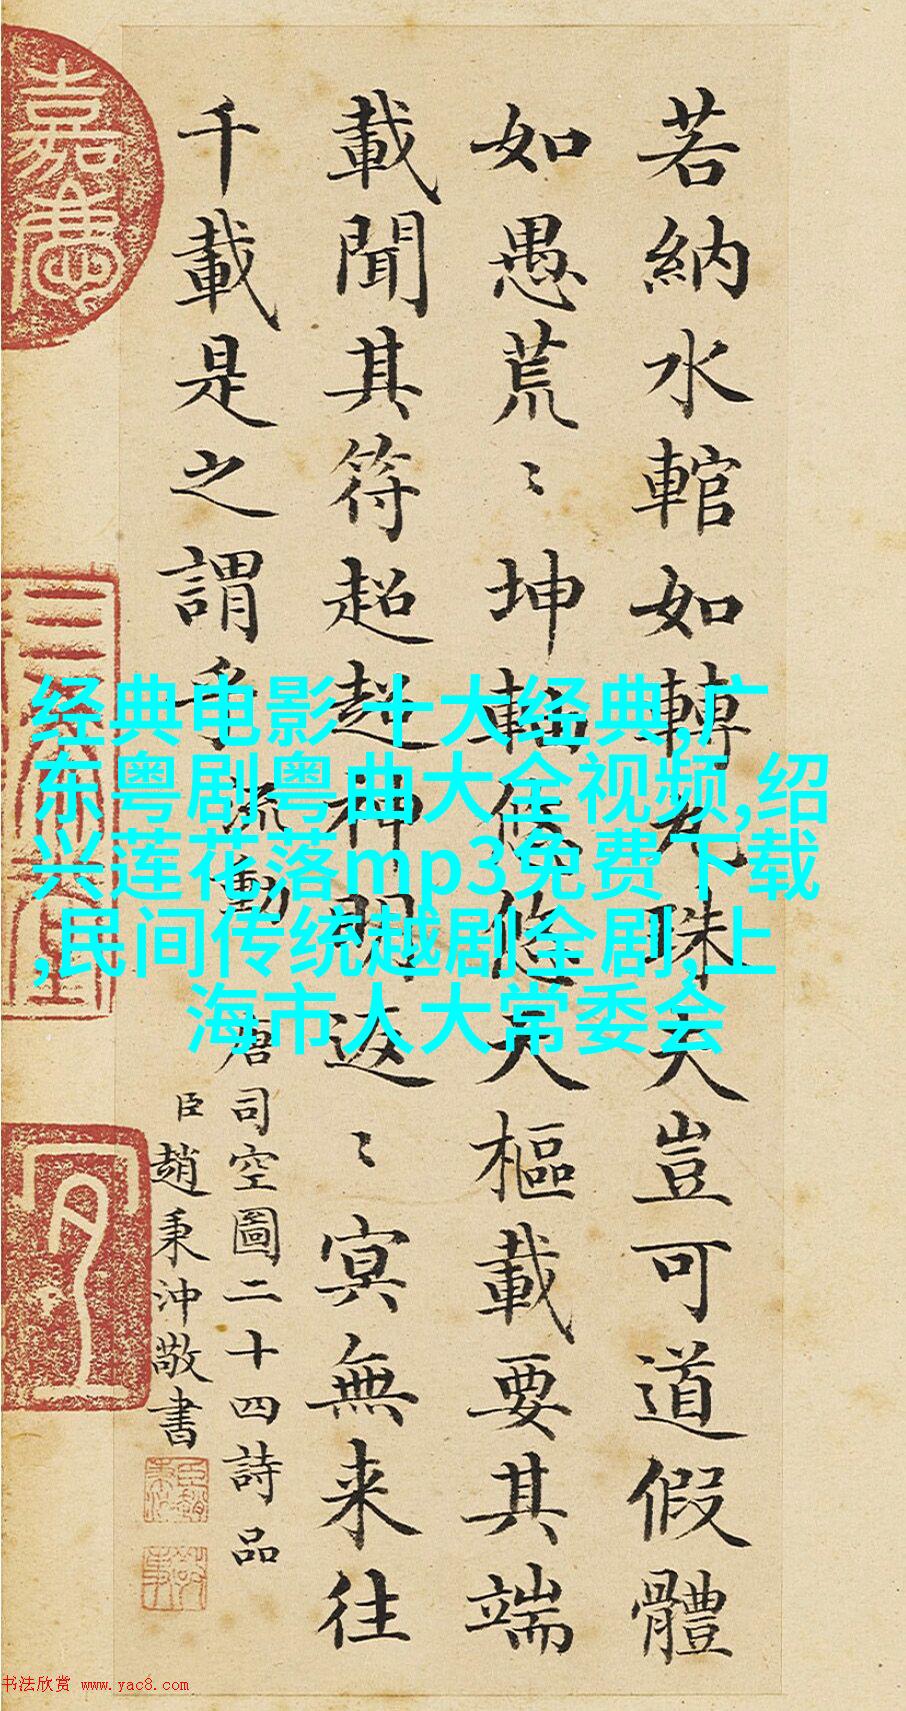 若納水輨如轉丸珠夫豈可道假體
如愚荒〻坤軸悠悠天樞載要其端
載聞其符超超神明返〻冥無来往
千載是之謂乎 流動
唐司空圖二十四詩品
臣趙秉沖敬書
嘉慶
经典电影 十大经典,广
东粤剧粤曲大全视频,绍
兴莲花落mp3免费下载
,民间传统越剧全剧,上
海市人大常委会
书法欣赏 www.yac8.com